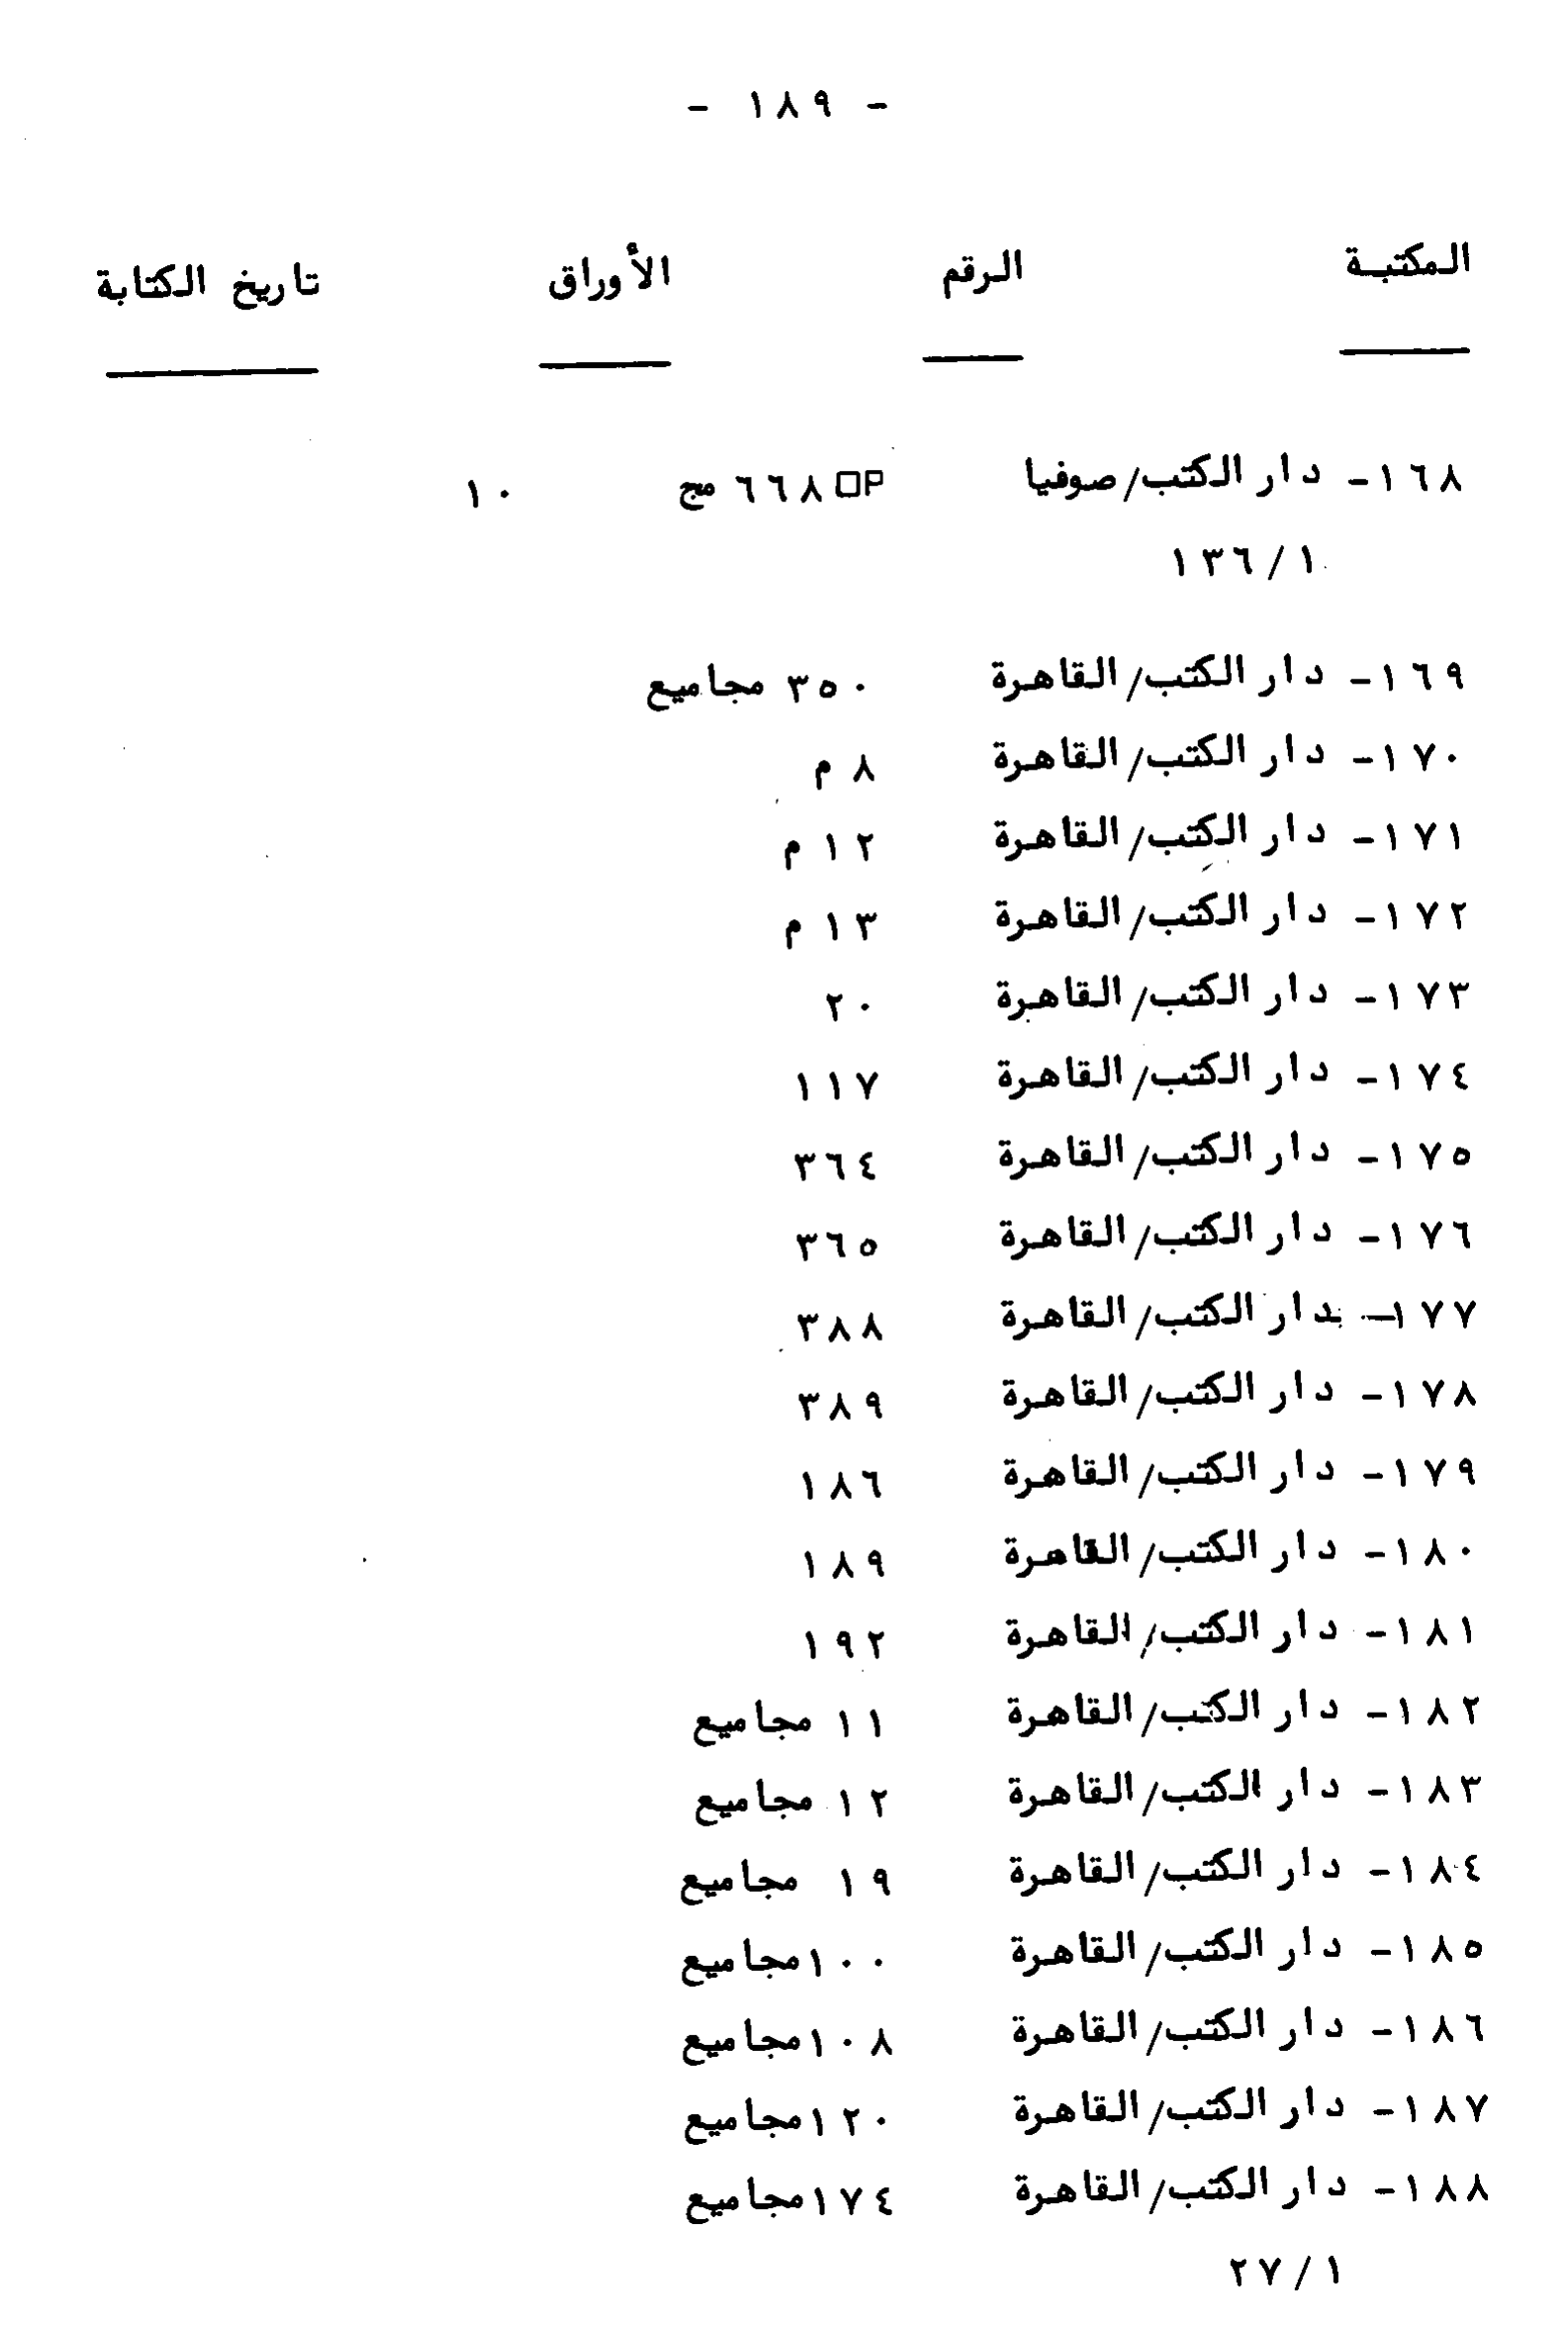 - ١٨٩ -
المكتبة الرقم الأوراق تاريخ الكتابة
١٦٨- دار الكتب/صوفيا OP٦٦٨ مج ١٠
١٣٦/١
١٦٩- دار الكتب/القاهرة ٣٥٠ مجاميع
١٧٠- دار الكتب/القاهرة ٨ م
١٧١- دار الكتب/القاهرة ١٢ م
١٧٢- دار الكتب/القاهرة ١٣ م
١٧٣- دار الكتب/القاهرة ٢٠
١٧٤- دار الكتب/القاهرة ١١٧
١٧٥- دار الكتب/القاهرة ٣٦٤
١٧٦- دار الكتب/القاهرة ٣٦٥
١٧٧- دار الكتب/القاهرة ٣٨٨
١٧٨- دار الكتب/القاهرة ٣٨٩
١٧٩- دار الكتب/القاهرة ١٨٦
١٨٠- دار الكتب/القاهرة ١٨٩
١٨١- دار الكتب/القاهرة ١٩٢
١٨٢- دار الكتب/القاهرة ١١ مجاميع
١٨٣- دار الكتب/القاهرة ١٢ مجاميع
١٨٤- دار الكتب/القاهرة ١٩ مجاميع
١٨٥- دار الكتب/القاهرة ١٠٠ مجاميع
١٨٦- دار الكتب/القاهرة ١٠٨ مجاميع
١٨٧- دار الكتب/القاهرة ١٢٠ مجاميع
١٨٨- دار الكتب/القاهرة ١٧٤ مجاميع
٢٧/١